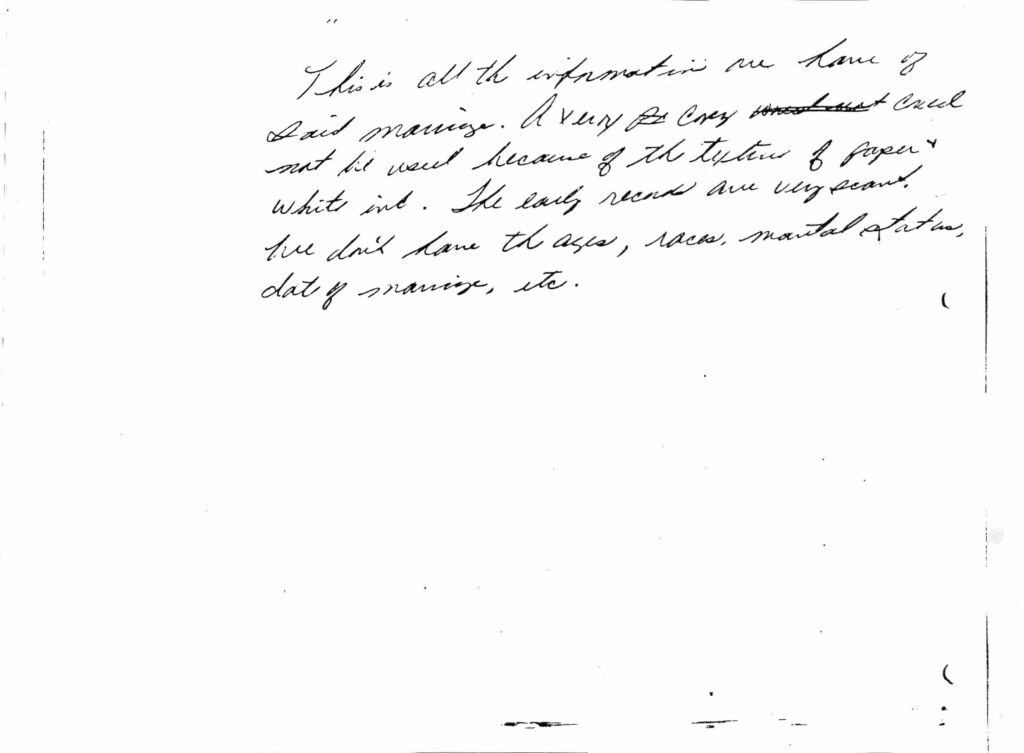 This is all the information we have of
said marriage. A Xerox copy could
not be used because of the texture of paper &
white ink. The early records are very scant.
We don't have the ages, races, marital status,
date of marriage, etc.